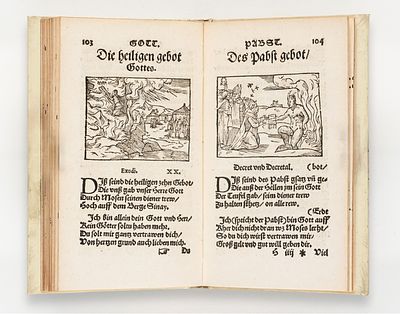 103 GOTT.
Die heiligen gebot
Gottes.
Exodi. XX.
Diß seind die heiligen zehen Gebot/
Die vnß gab vnser Herre Gott
Durch Mosen seinen diener trew/
Hoch auff dem Berge Sinay.
Ich bin allein dein Gott vnd Herr/
Kein Götter soltu haben mehr.
Du solt mir gantz vertrawen dich/
Von hertzen grund auch lieben mich.
Du
PABST. 104
Des Pabst gebot/
Decret vnd Decretal. (bot/
Diß seind des Pabst gsatz vñ ge-
Die auß der Hellen jm sein Gott
Der Teufel gab/ seim diener trew
Zu halten stehtz/ on alle rew.
(Erdt
Ich (spricht der Pabst) bin Gott auff
Kher dich nicht dran wz Moses lerht/
So du dich würst vertrawen mir/
Groß gelt vnd gut will geben dir.
H iiij * Viel